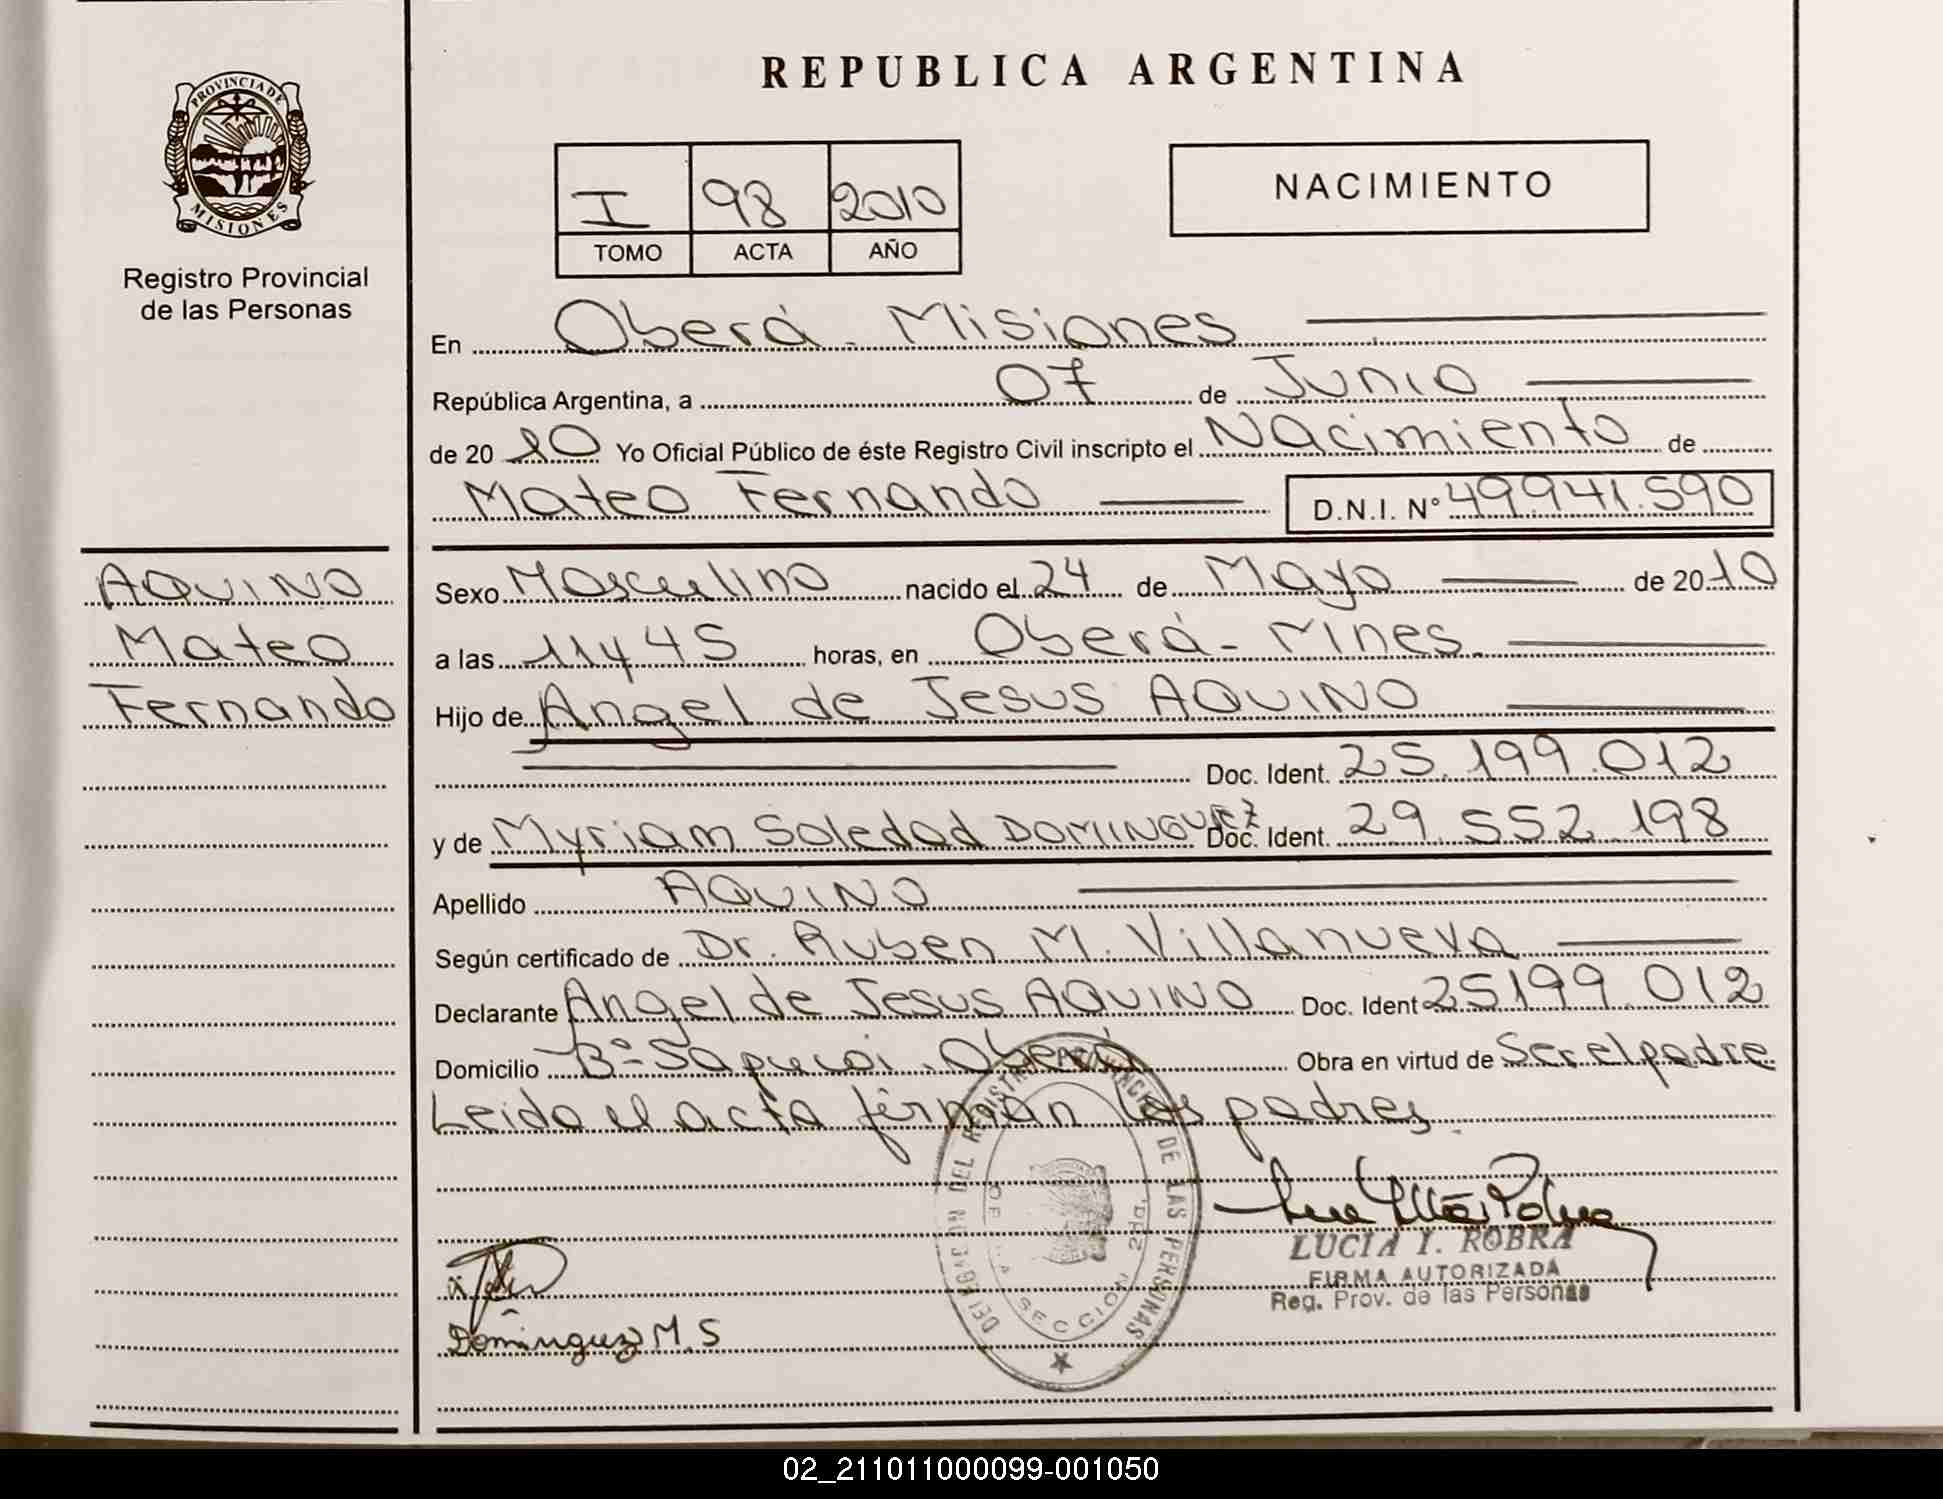 PROVINCIA DE
MISIONES
Registro Provincial
de las Personas
REPUBLICA ARGENTINA
I 98 2010
TOMO ACTA AÑO
NACIMIENTO
En Oberá - Misiones
República Argentina, a 07 de Junio
de 20 10 Yo Oficial Público de éste Registro Civil inscripto el Nacimiento de
Mateo Fernando D.N.I. N° 49.941.590
AQUINO
Mateo
Fernando
Sexo Masculino nacido el 24 de Mayo de 2010
a las 11y45 horas, en Oberá - Mnes.
Hijo de Angel de Jesus AQUINO
Doc. Ident. 25.199.012
y de Myriam Soledad DOMINGUEZ Doc. Ident. 29.552.198
Apellido AQUINO
Según certificado de Dr. Ruben M. Villanueva
Declarante Angel de Jesus AQUINO Doc. Ident 25199.012
Domicilio B° Sapucai. Oberá Obra en virtud de Ser el padre
Leido el acta firman los padres.
DELEGACION DEL REGISTRO PROVINCIAL DE LAS PERSONAS
SECCION 2DA.
LUCIA I. ROBRA
FIRMA AUTORIZADA
Reg. Prov. de las Personas
Dominguez M.S
02_211011000099-001050